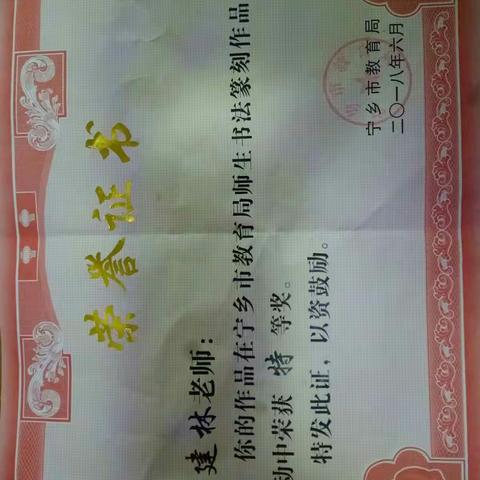 荣誉证书
建林老师：
你的作品在宁乡市教育局师生书法篆刻作品
动中荣获 特 等奖。
特发此证，以资鼓励。
宁乡市教育局
二〇一八年六月